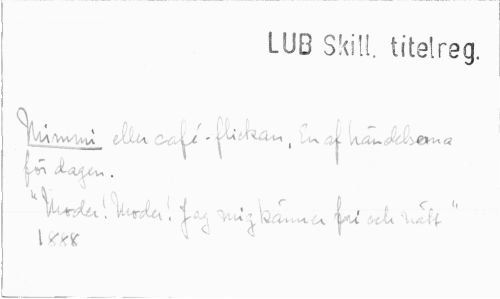 LUB Skill. titelreg.
Mimmi eller café-flickan, En af händelserna
för dagen.
"Moder! Moder! Jag mig känner fri och nätt"
1888